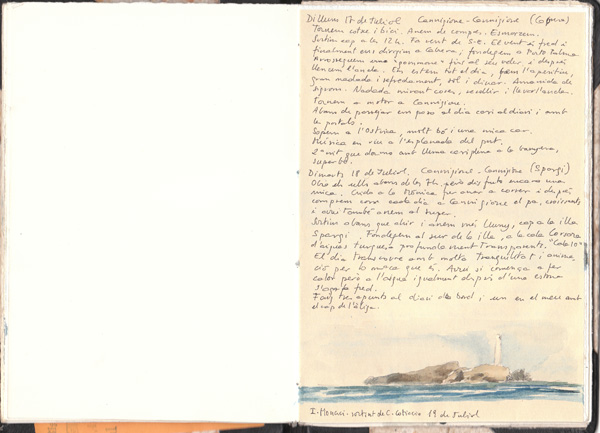 Dilluns 17 de Juliol   Cannigione-Cannigione (Caprera)
Tornem cotxe i bici. Anem de compres. Esmorzem.
Sortim cap a les 12 h. Fa vent de S-E. El vent és fred i
finalment ens dirigim a Cabrera; fondegem a Porto Palma
Arrosseguem una "pommare" fins al seu veler i després
llencem l'ancla. Ens estem tot el dia, fem l'aperitiu
gran nedada i refredament, sol i dinar. Amanida de
Nedada mirant coses, recollir i llevar l'ancla.
Tornem a motor a Cannigione.
Abans de passejar em poso al dia cari al diari i amb
les postals.
Sopem a l'Ostrica, molt bé i una mica car.
Música en viu a l'esplanada del port.
2ª nit que dormo amb lluna a la banyera,
superbo.
Dimarts 18 de Juliol.   Cannigione-Cannigione (Spargi)
Obro els ulls abans de les 7h. però des faig encara una
mica. Crido a la Mònica per anar a correr i després
comprem com cada dia a Cannigione el pa, croissants
i avui també anem al súper.
Sortim abans que ahir i anem més lluny, cap a la illa
Spargi. Fondegem al sur de la illa, a la cala Corsara
d'aigües turquesa profundament transparents. "Cala 10"
El dia transcorre amb molta tranquilitat i anima-
ció per la música que és. Avui si comença a fer
calor però a l'aigua igualment després d'una estona
s'agafa fred.
Faig tres apunts al diari de bord i un en el meu amb
el cap de l'àliga.
I. Monaci. sortint de C. Coticcio 19 de Juliol